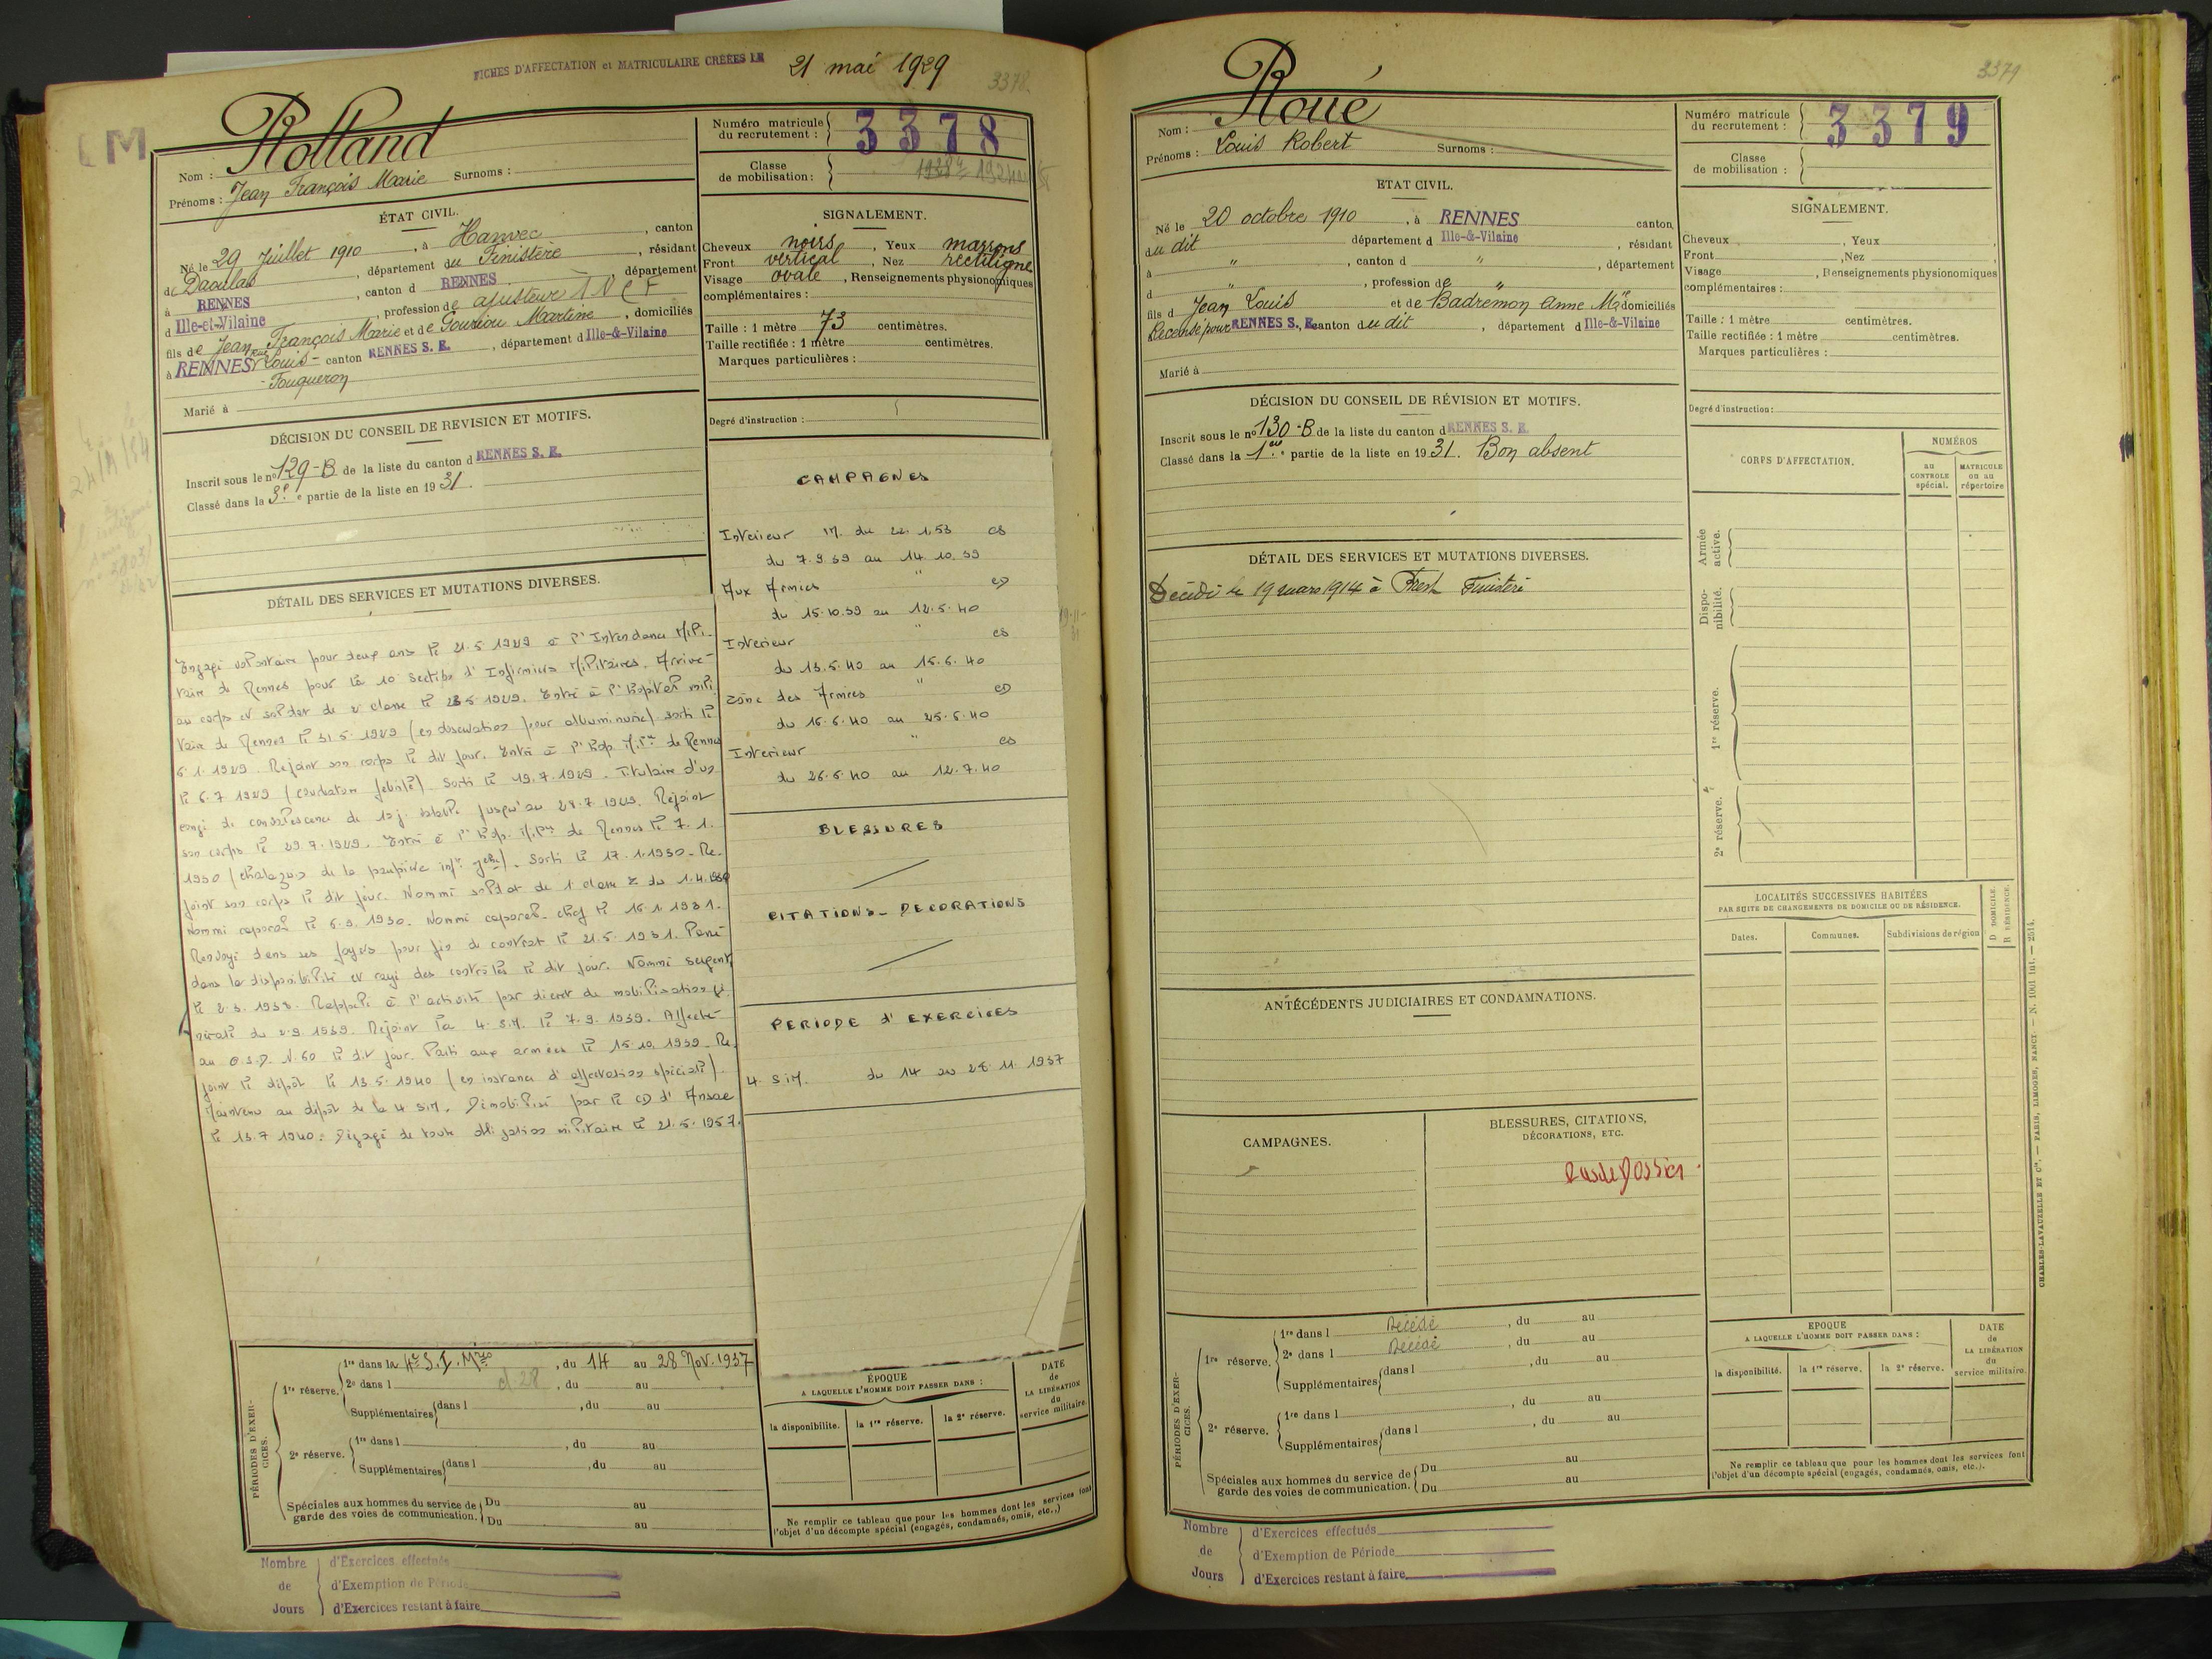 FICHES D'AFFECTATION et MATRICULAIRE CRÉÉES LE 21 mai 1929
3378.
[M
Nom : Rolland
Prénoms : Jean François Marie Surnoms :
Numéro matricule du recrutement : 3378
Classe de mobilisation :
ÉTAT CIVIL.
Né le 29 Juillet 1910, à Hanvec, canton
de Daoulas, département du Finistère, résidant
à RENNES, canton d RENNES, département
d Ille-et-Vilaine, profession de ajusteur
fils de Jean François Marie et de Gouriou Martine, domiciliés
à RENNES Rue Louis- canton RENNES S. E., département d Ille-&-Vilaine
-Fouqueron
Marié à
SIGNALEMENT.
Cheveux noirs, Yeux marrons
Front vertical, Nez rectiligne
Visage ovale, Renseignements physionomiques
complémentaires :
Taille : 1 mètre 73 centimètres.
Taille rectifiée : 1 mètre centimètres.
Marques particulières :
Degré d'instruction :
DÉCISION DU CONSEIL DE REVISION ET MOTIFS.
Inscrit sous le no 129-B de la liste du canton d RENNES S. E.
Classé dans la 3e e partie de la liste en 1931.
DÉTAIL DES SERVICES ET MUTATIONS DIVERSES.
Engagé volontaire pour deux ans le 21.5.1929 à l'Intendance Mili-
taire de Rennes pour la 10 Section d'Infirmiers Militaires. Arrivé
au corps et soldat de 2 classe le 23.5.1929. Entré à l'hopital mili-
taire de Rennes le 31.5.1929 (en observation pour albuminurie) sorti le
6.7.1929. Rejoint son corps le dit jour. Entré à l'hop. Mre de Rennes
le 6.7.1929 (courbature fébrile). Sorti le 19.7.1929. Titulaire d'un
congé de convalescence de jusqu'au 28.7.1929. Rejoint
son corps le 29.7.1929. Entré à l'hop. Mre de Rennes le 7.1.
1930 (chalazion de la paupière infre gche). Sorti le 17.1.1930. Re-
joint son corps le dit jour. Nommé soldat de 1 classe du 1.4.1930
Nommé caporal le 6.9.1930. Nommé caporal-chef le 16.1.1931.
Renvoyé dans ses foyers pour fin de contrat le 21.5.1931. Passé
dans la disponibilité et rayé des contrôles le dit jour. Nommé sergent
le 2.3.1938. Rappelé à l'activité par décret de mobilisation gé-
nérale du 2.9.1939. Rejoint la 4. S.I.M. le 7.9.1939. Affecté
au N.60 le dit jour. Parti aux armées le 15.10.1939. Re-
joint le dépôt le 13.5.1940 (en instance d'affectation spéciale).
Maintenu au dépôt de la 4 SIM. Démobilisé par le CD d'
le 13.7.1940. Dégagé de toute obligation militaire le 21.5.1957.
CAMPAGNES
Interieur CS
du 7.9.39 au 14.10.39
Aux Armées " CD
du 15.10.39 au 12.5.40
Interieur " CS
du 13.5.40 au 15.6.40
zône des Armées " CD
du 16.6.40 au 25.6.40
Interieur " CS
du 26.6.40 au 12.7.40
BLESSURES
CITATIONS - DECORATIONS
PERIODE d'EXERCICES
4. SIM. du 14 au 28.11.1937
PÉRIODES D'EXERCICES.
1re réserve. 1re dans la 4e S.I.Mres, du 14 au 28 Nov. 1937
2e dans l cl 28, du au
Supplémentaires dans l, du au
2e réserve. 1re dans l, du au
Supplémentaires dans l, du au
Spéciales aux hommes du service de garde des voies de communication. Du au
Du au
ÉPOQUE
A LAQUELLE L'HOMME DOIT PASSER DANS :
la disponibilité. la 1re réserve. la 2e réserve.
DATE de LA LIBÉRATION du service militaire
Ne remplir ce tableau que pour les hommes dont les services font
l'objet d'un décompte spécial (engagés, condamnés, omis, etc.,)
Nombre de Jours
d'Exercices effectués
d'Exemption de Période
d'Exercices restant à faire
3379
Nom : Roué
Prénoms : Louis Robert Surnoms :
Numéro matricule du recrutement : 3379
Classe de mobilisation :
ETAT CIVIL.
Né le 20 octobre 1910, à RENNES canton
du dit département d Ille-&-Vilaine, résidant
à ", canton d ", département
d ", profession de "
fils d Jean Louis et de Badremon Anne Mie domiciliés
Recensé pour RENNES S. E. canton du dit, département d Ille-&-Vilaine
Marié à
SIGNALEMENT.
Cheveux, Yeux
Front, Nez
Visage, Renseignements physionomiques
complémentaires :
Taille : 1 mètre centimètres.
Taille rectifiée : 1 mètre centimètres.
Marques particulières :
Degré d'instruction :
DÉCISION DU CONSEIL DE RÉVISION ET MOTIFS.
Inscrit sous le no 130-B de la liste du canton d RENNES S. E.
Classé dans la 1ere partie de la liste en 1931. Bon absent
DÉTAIL DES SERVICES ET MUTATIONS DIVERSES.
Décédé le 19 mars 1914 à Brest Finistère
CORPS D'AFFECTATION.
NUMÉROS
au CONTROLE spécial.
MATRICULE ou au répertoire
Armée active.
Disponibilité.
1re réserve.
2e réserve.
LOCALITÉS SUCCESSIVES HABITÉES
PAR SUITE DE CHANGEMENTS DE DOMICILE OU DE RÉSIDENCE.
Dates. Communes. Subdivisions de région
D DOMICILE.
R RÉSIDENCE.
ANTÉCÉDENTS JUDICIAIRES ET CONDAMNATIONS.
CAMPAGNES.
BLESSURES, CITATIONS,
DÉCORATIONS, ETC.
Pas de Dossier.
PÉRIODES D'EXERCICES.
1re réserve. 1re dans l Décédé, du au
2e dans l Décédé, du au
Supplémentaires dans l, du au
, du au
2e réserve. 1re dans l, du au
Supplémentaires dans l, du au
Spéciales aux hommes du service de garde des voies de communication. Du au
Du au
EPOQUE
A LAQUELLE L'HOMME DOIT PASSER DANS :
la disponibilité. la 1re réserve. la 2e réserve.
DATE de LA LIBÉRATION du service militaire.
Ne remplir ce tableau que pour les hommes dont les services font
l'objet d'un décompte spécial (engagés, condamnés, omis, etc.,).
CHARLES-LAVAUZELLE ET Cie. — PARIS, LIMOGES, NANCY. — N. 1001 bis. — 2514.
Nombre de Jours
d'Exercices effectués
d'Exemption de Période
d'Exercices restant à faire